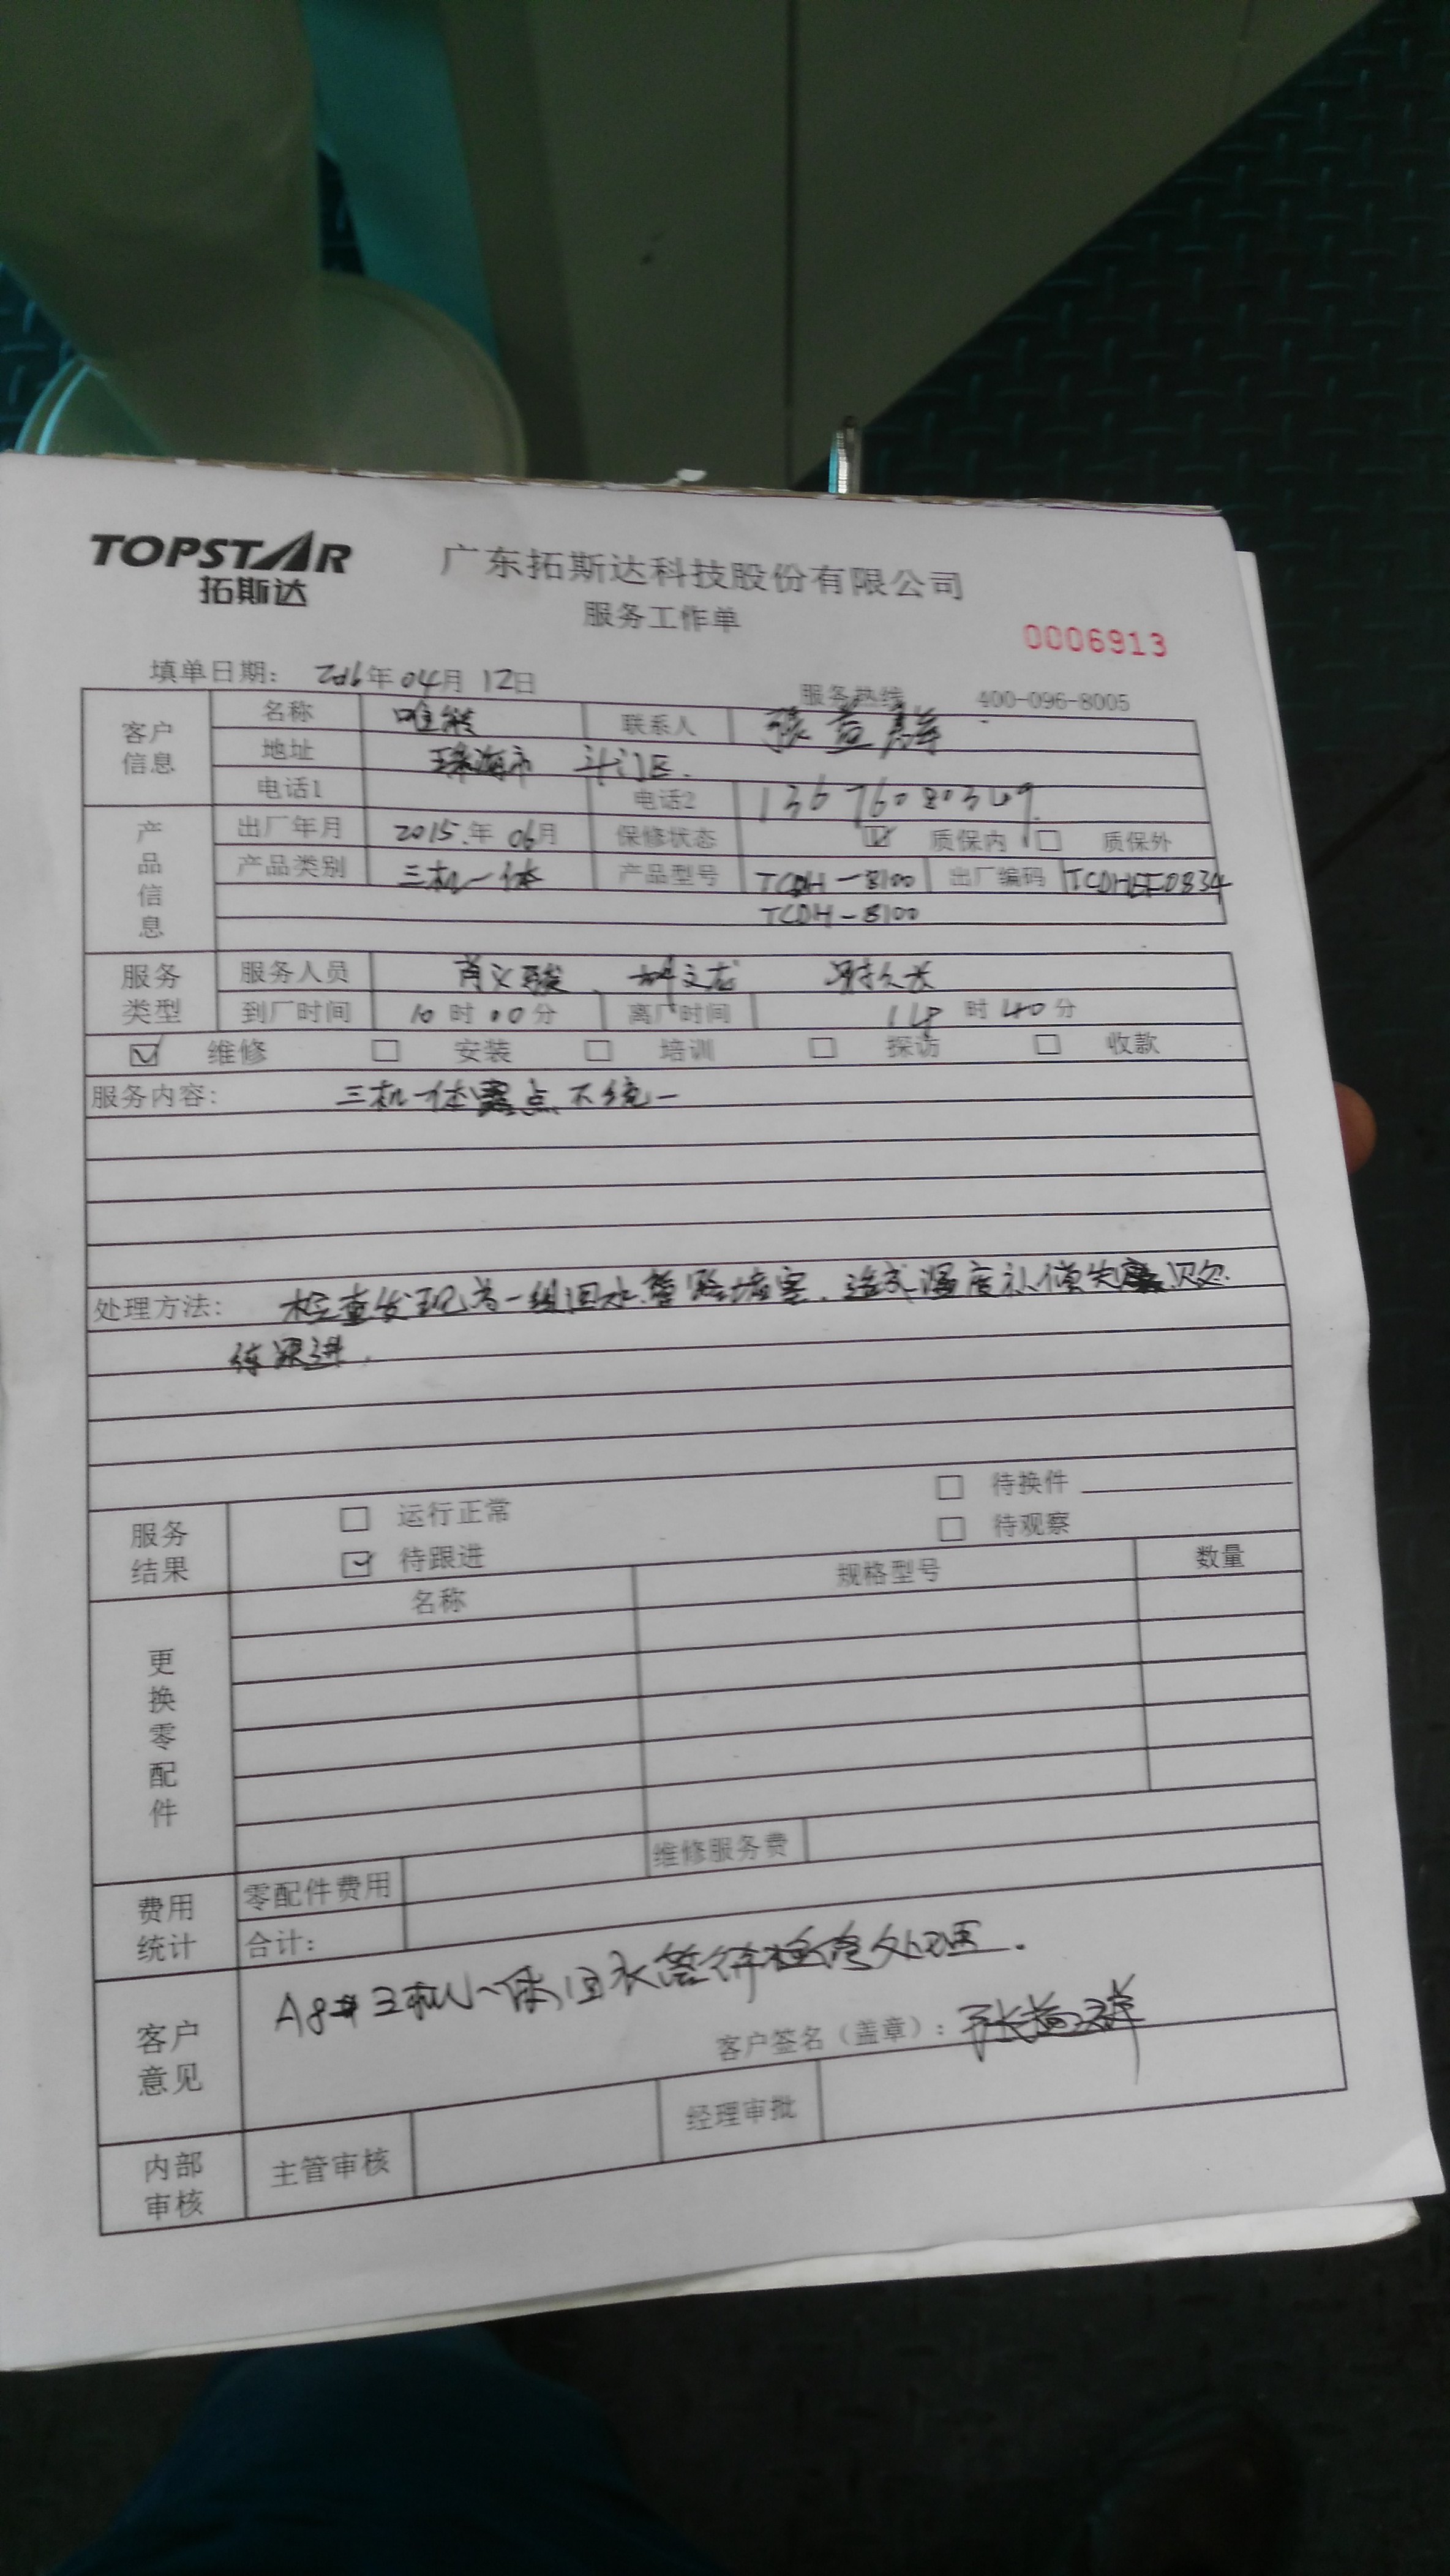 TOPSTAR
拓斯达
广东拓斯达科技股份有限公司
服务工作单
0006913
填单日期： 2016年 04月 12日
服务热线 400-096-8005
客户信息
名称 唯能 联系人 张
地址 珠海市 斗门区.
电话1 电话2
产品信息
出厂年月 2015.年 06月 保修状态 ☑ 质保内 □ 质保外
产品类别 三机一体 产品型号 TCDH-8100 出厂编码
TCDH-8100
服务类型
服务人员
到厂时间 10 时 00 分 离厂时间 时 40 分
☑ 维修 □ 安装 □ 培训 □ 探访 □ 收款
服务内容： 三机一体露点不统一
处理方法： 检查发现为一组回水管路堵塞，造成温度补偿失
待跟进.
服务结果
□ 运行正常 □ 待换件
☑ 待跟进 □ 待观察
更换零配件
名称 规格型号 数量
费用统计
零配件费用 维修服务费
合计：
客户意见
A8# 三机一体，回水管待检修处理.
客户签名（盖章）： 张
内部审核
主管审核 经理审批